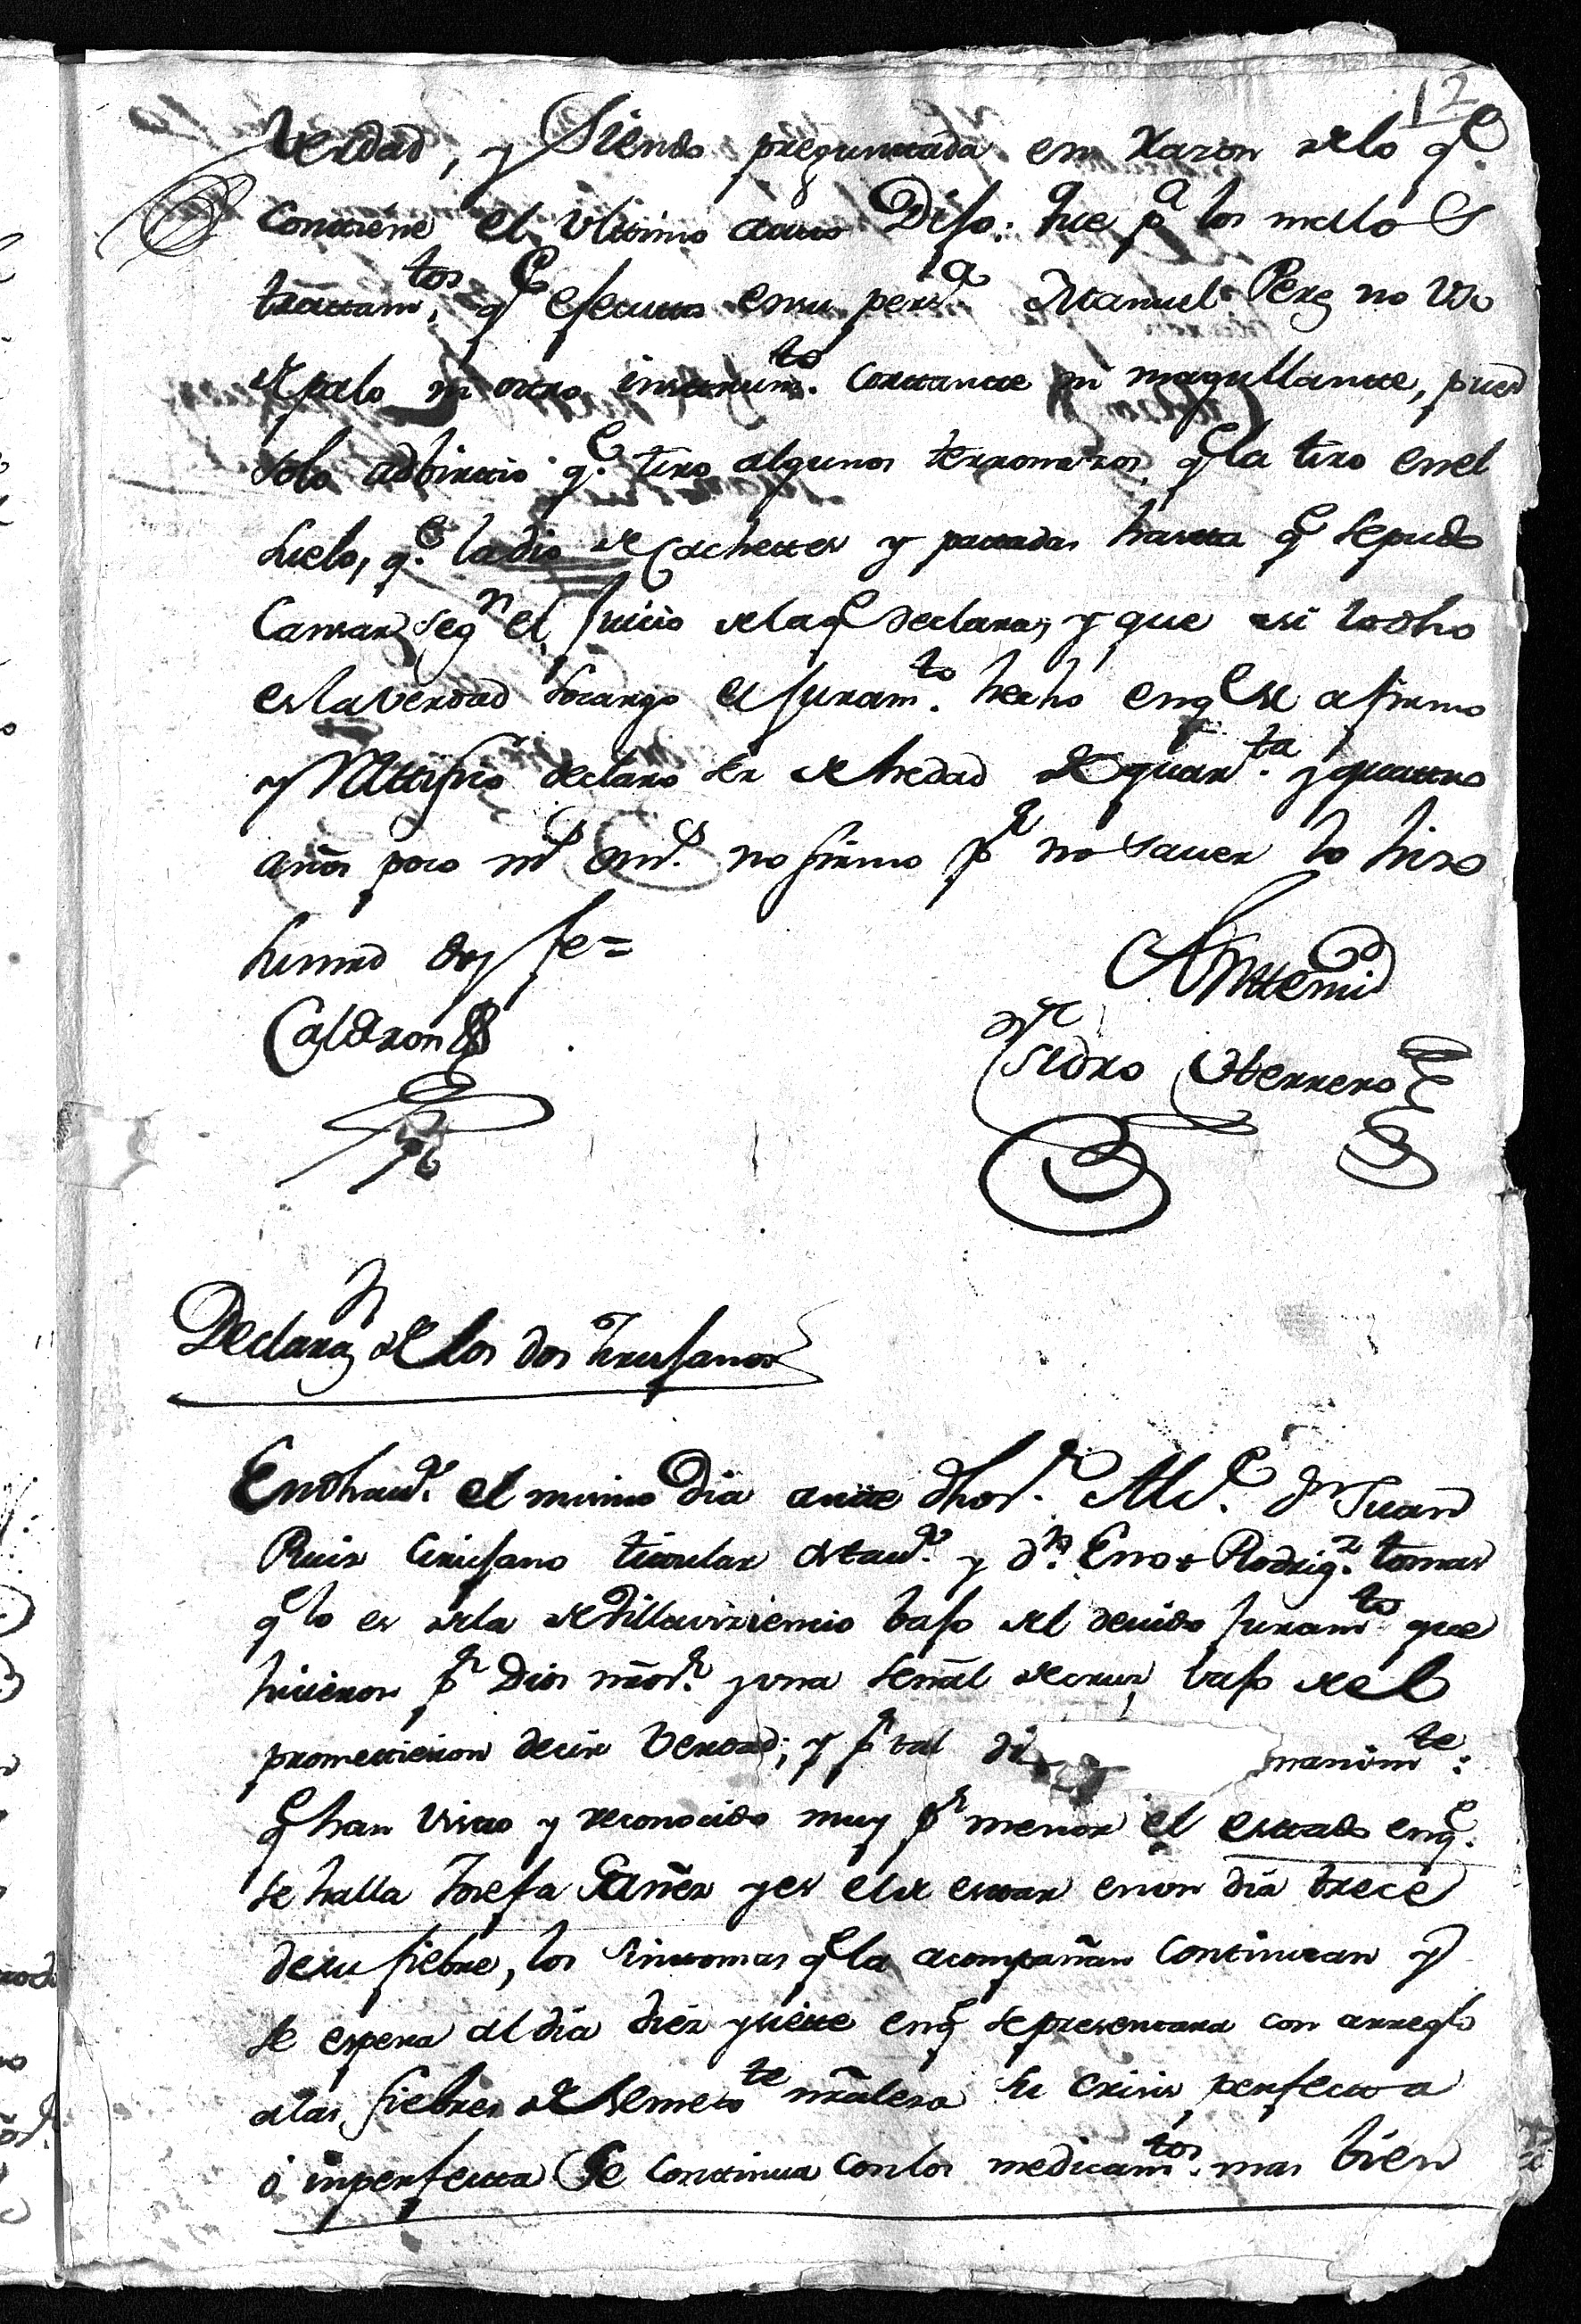 12
Verdad, y Siendo preguntada en Razon de lo q.e
Conttiene el Ulttimo autto Dijo: que p.a los malos
trattam.tos, q.e efecutto en su pers.a Manuel Perez no Uso
de palo ni ottro insttrum.to Corttantte ni magullantte, pues
solo adbirttio q.e tiro algunos terronazos, q.e la tiro en el
suelo, q.e la dio de Cachettes y pattadas hastta q.e se pudo
Cansar, seg.n el Juicio de la q.e declara, y que asi lo dho
es la verdad socargo el juram.to hecho en q.e se afirmo
y Rattifico declaro ser de hedad de quar.ta y quattro
años poco m.s om.s no firmo p.r no saver lo hizo
su mrd doy fe=
Calderon
Antte mi
Ysidro Herrero
Declaraz.n de los dos Zirujanos
En dha v.a el mismo Dia antte dho s.r Ald.e d.n Juan
Ruiz Cirujano titular de esta v.a y d.n Rodrig.z tomas
q.e lo es de la de Villavizencio bajo del devido juram.to que
hicieron p.r Dios nro s.r y una señal de cruz, bajo del
promettieron decir Verdad; y p.r tal di nanim.te:
q.e han Visto y reconocido muy p.r menor el esttado en q.e
se halla Josefa Gañez y es el de esttar en on dia trece
de su fiebre, los sinttomas q.e la acompañan Continuan y
se espera al dia diez y siette en q.e se presentara con arreglo
a las fiebres de semej.te nralesa su crisis perfectta
ó inperfectta Se Conttinua con los medicam.tos mas bien